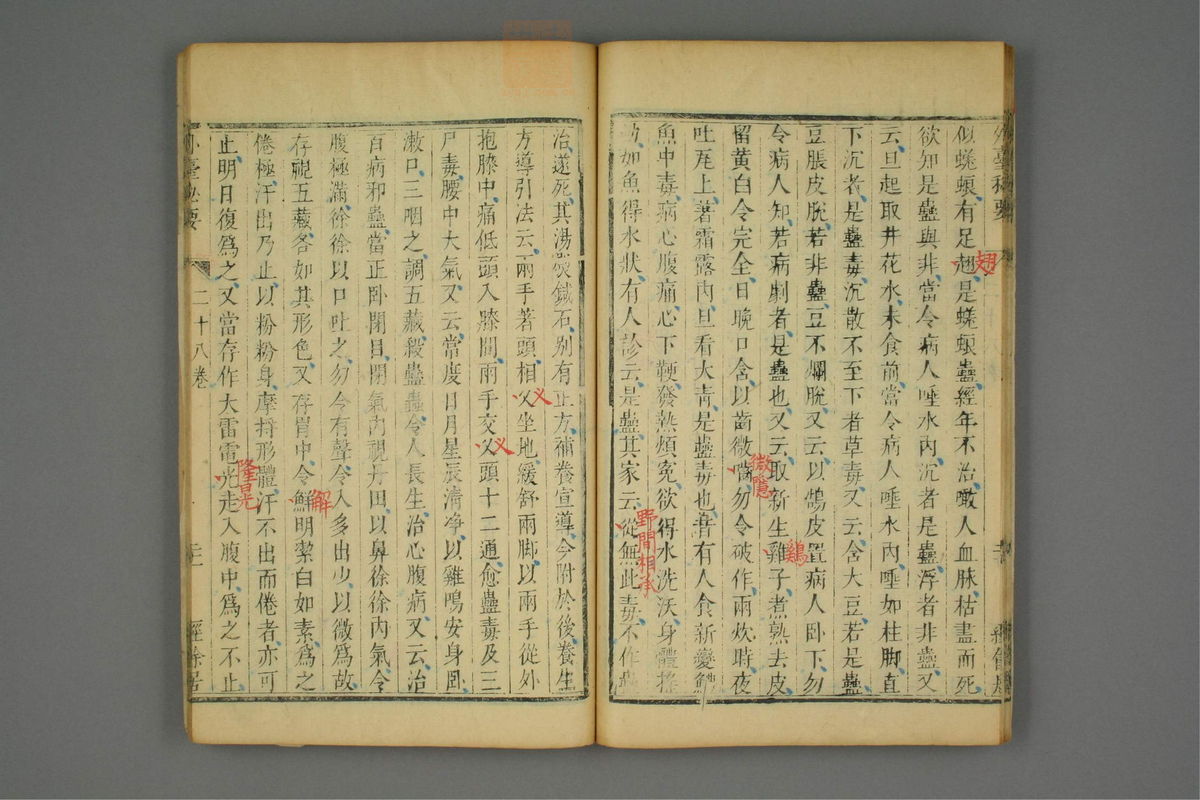 似蜣蜋有足翅是蜣蜋蠱經年不治噉人血脉枯盡而死
翅
欲知是蠱與非當令病人唾水内沉者是蠱浮者非蠱又
云旦起取井花水未食前當令病人唾水内唾如柱脚直
下沉者是蠱毒沉散不至下者草毒又云含大豆若是蠱
豆脹皮脫若非蠱豆不爛脫又云以鵠皮置病人卧下勿
令病人知若病劇者是蠱也又云取新生雞子煮熟去皮
鷄
留黄白令完全日晚口含以齒微嚙勿令破作兩炊時夜
微隱
吐瓦上著霜露内旦看大青是蠱毒也昔有人食新變鯉
魚中毒病心腹痛心下鞕發熱煩寃欲得水洗沃身體搖
動如魚得水狀有人診云是蠱其家云從無此毒不作蠱
野間相承
治遂死其湯熨鍼石别有正方補養宣導今附於後養生
方導引法云兩手著頭相乂坐地緩舒兩脚以兩手從外
义
抱膝中痛低頭入膝間兩手交乂頭十二通愈蠱毒及三
义
尸毒腰中大氣又云常度日月星辰清净以雞鳴安身卧
漱口三咽之調五藏殺蠱蟲令人長生治心腹病又云治
百病邪蠱當正卧閉目閉氣内視丹田以鼻徐徐内氣令
腹極滿徐徐以口吐之勿令有聲令入多出少以微爲故
存視五藏各如其形色又存胃中令鮮明潔白如素爲之
解
倦極汗出乃止以粉粉身摩捋形體汗不出而倦者亦可
止明日復爲之又當存作大雷電光走入腹中爲之不止
隆晃
二十八卷
經餘居